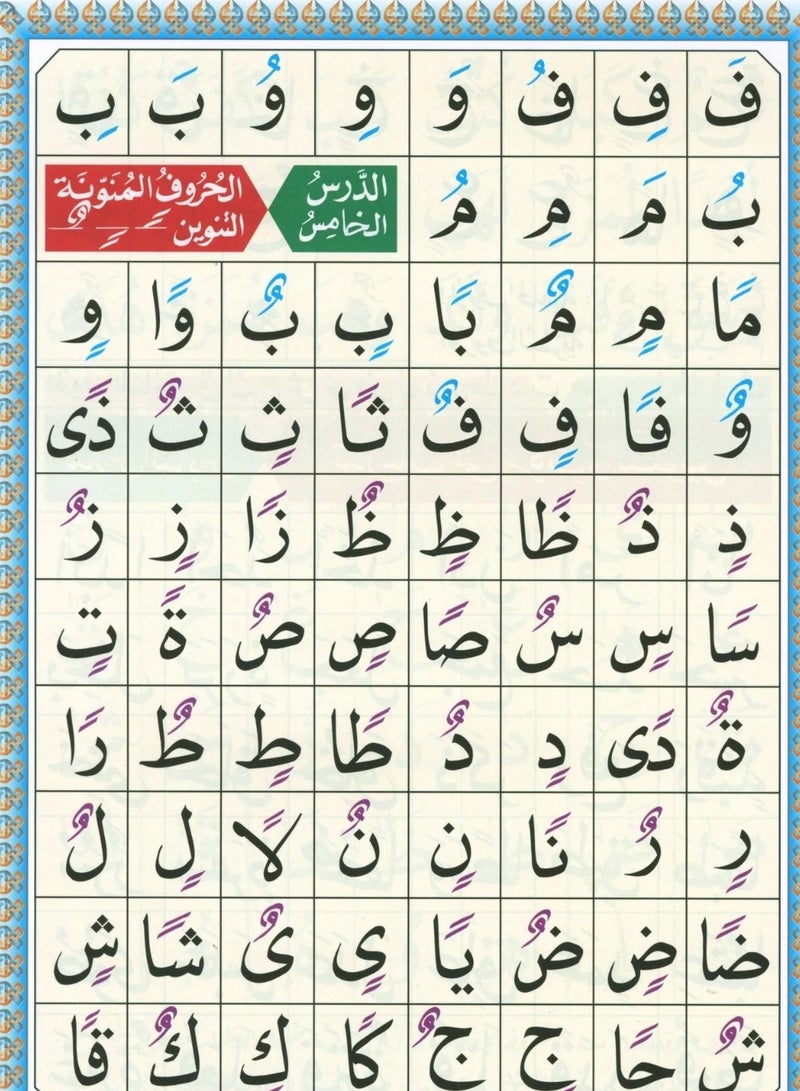 فَ فِ فُ وَ وِ وُ بَ بِ
بُ مَ مِ مُ
الدَّرسُ
الخامِسُ
الحُروفُ المُنَوّنَة
التنوين ـًـ ـٍـ ـٌـ
مًا مٍ مٌ بًا بٍ بٌ وًا وٍ
وٌ فًا فٍ فٌ ثًا ثٍ ثٌ ذًى
ذٍ ذٌ ظًا ظٍ ظٌ زًا زٍ زٌ
سًا سٍ سٌ صًا صٍ صٌ ةً تٍ
ةٌ دًى دٍ دٌ طًا طٍ طٌ رًا
رٍ رٌ نًا نٍ نٌ لًا لٍ لٌ
ضًا ضٍ ضٌ يًا ىٍ ىٌ شًا شٍ
شٌ جًا جٍ جٌ كًا كٍ كٌ قًا